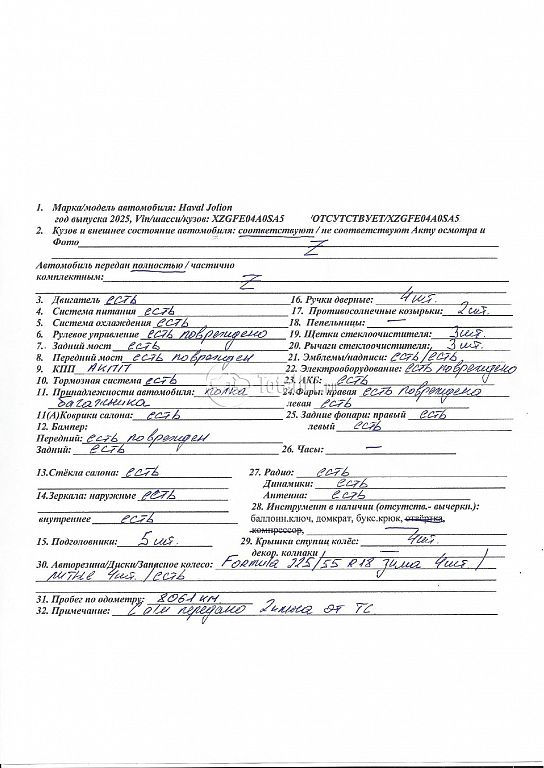 1. Марка/модель автомобиля: Haval Jolion
год выпуска 2025, Vin/шасси/кузов: XZGFE04A0SA5 ОТСУТСТВУЕТ/XZGFE04A0SA5
2. Кузов и внешнее состояние автомобиля: соответствуют / не соответствуют Акту осмотра и
Фото Z
Автомобиль передан полностью / частично
комплектным: Z
3. Двигатель есть
16. Ручки дверные: 4 шт.
4. Система питания есть
17. Противосолнечные козырьки: 2 шт.
5. Система охлаждения есть
18. Пепельницы: —
6. Рулевое управление есть повреждено
19. Щетки стеклоочистителя: 3 шт.
7. Задний мост есть
20. Рычаги стеклоочистителя: 3 шт.
8. Передний мост есть поврежден
21. Эмблемы/надписи: есть/есть
9. КПП АКПП
22. Электрооборудование: есть повреждено
10. Тормозная система есть
23. АКБ: есть
11. Принадлежности автомобиля: полка
багажника
24. Фары: правая есть повреждена
левая есть
11(А) Коврики салона: есть
25. Задние фонари: правый есть
левый есть
12. Бампер:
Передний: есть поврежден
Задний: есть
26. Часы: —
13. Стёкла салона: есть
27. Радио: есть
Динамики: есть
Антенна: есть
14. Зеркала: наружные есть
внутреннее есть
28. Инструмент в наличии (отсутств.- вычеркн.):
баллонн.ключ, домкрат, букс.крюк, отвёртка,
компрессор,
15. Подголовники: 5 шт.
29. Крышки ступиц колёс: 4 шт.
декор. колпаки —
30. Авторезина/Диски/Запасное колесо: Formula 225/55 R18 зима 4шт /
литые 4шт. / есть
31. Пробег по одометру: 8061 км
32. Примечание: передано 2 ключа от ТС